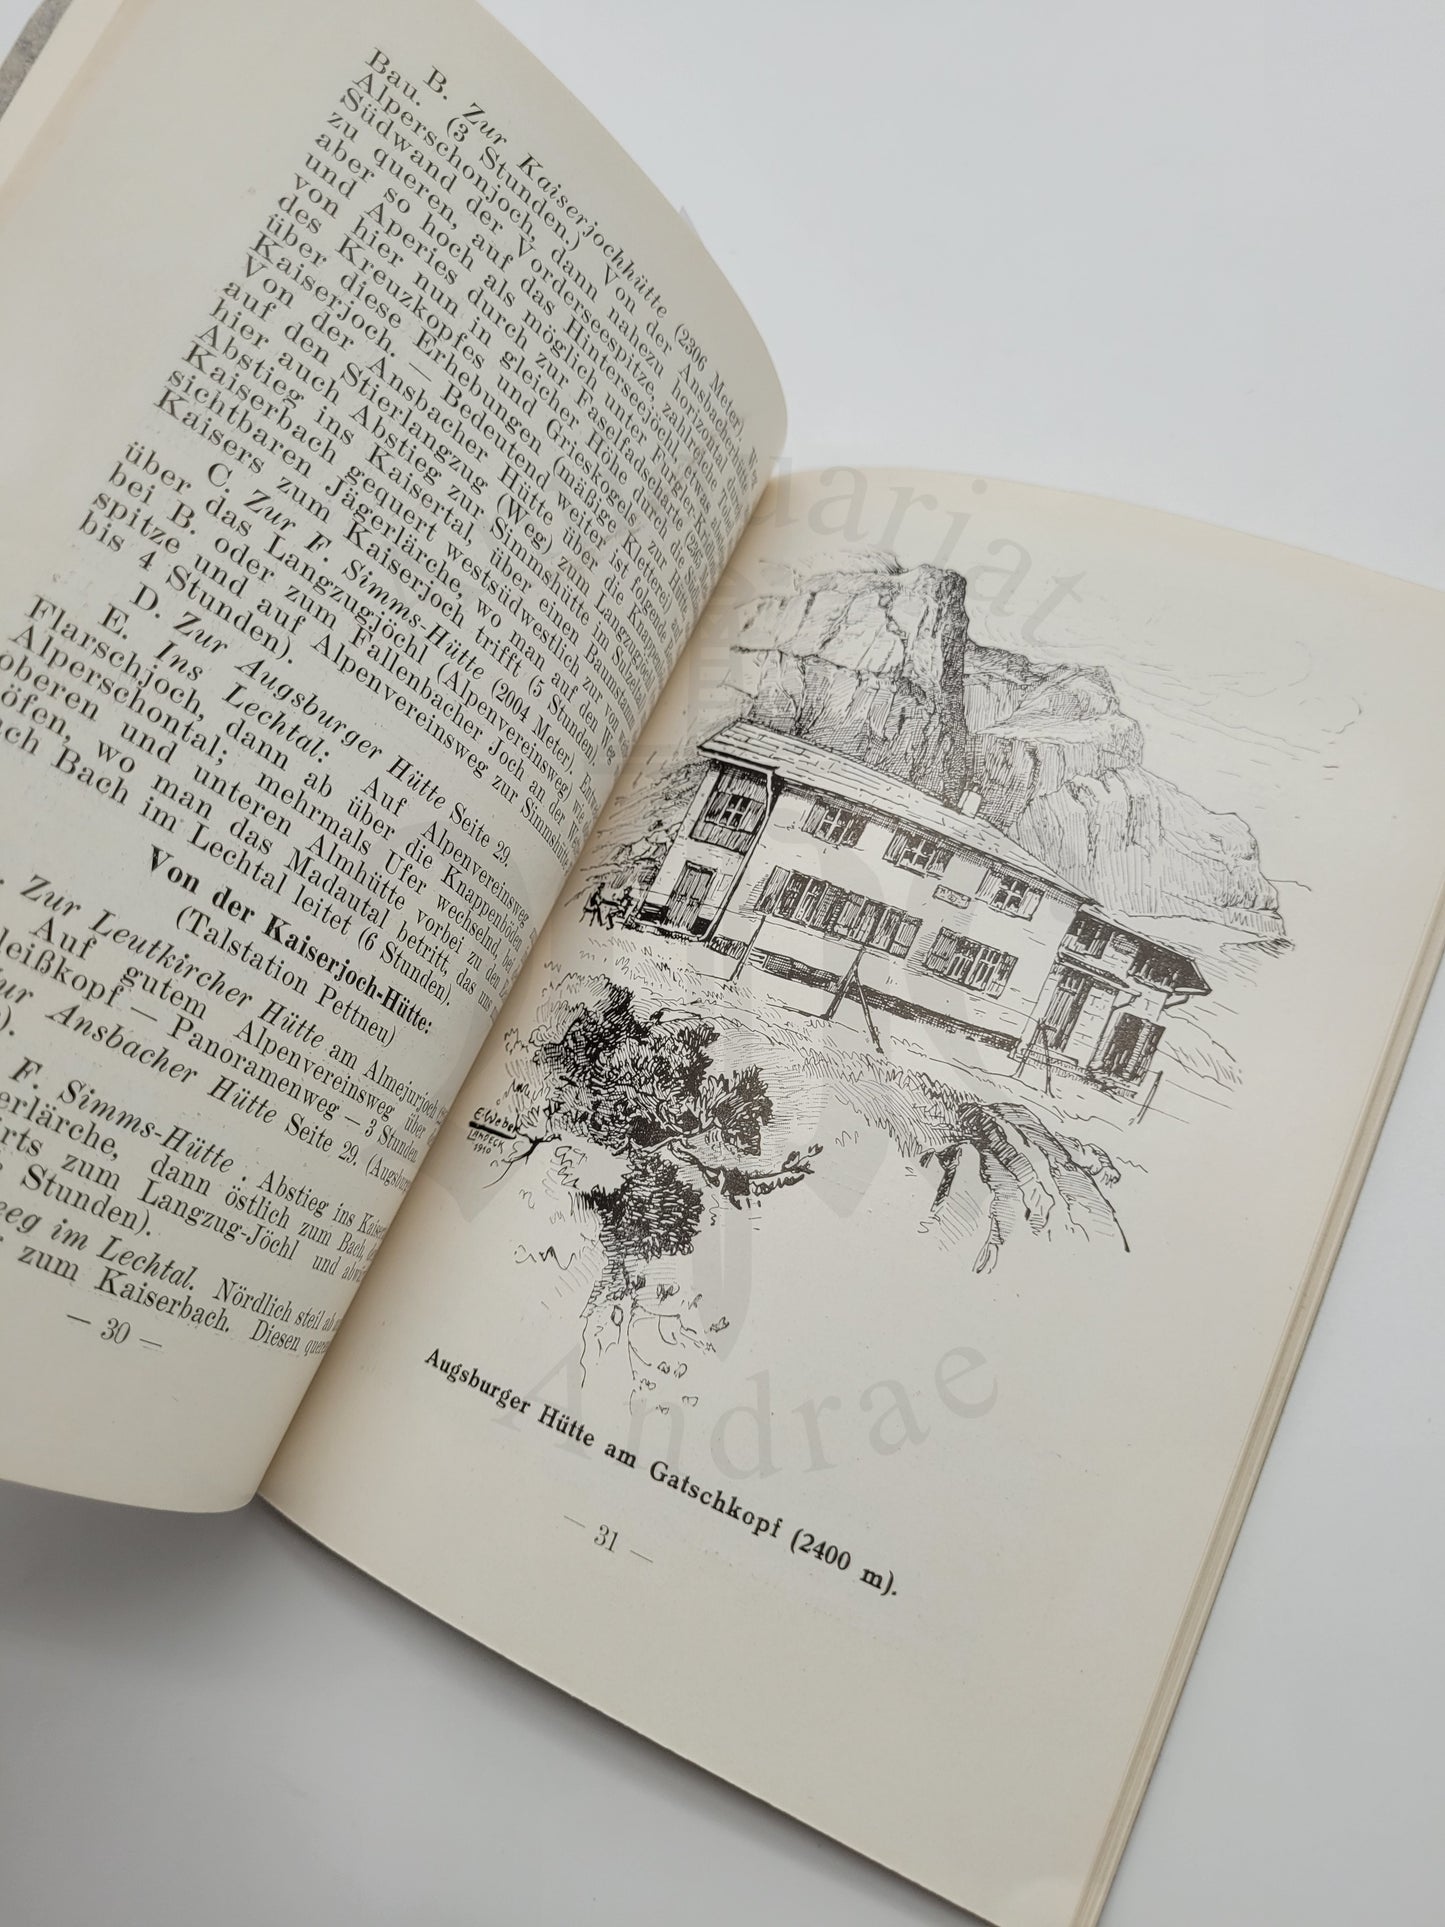 B. Zur Kaiserjochhütte (2306 Meter).
Bau. (3 Stunden.) Von der Ansbacher Hütte
Alperschonjoch, dann nahezu horizontal durch die
Südwand der Vorderseespitze, zahlreiche
zu queren, auf das Hinterseejöchl, etwas
aber so hoch als möglich unter Furgler-
und Aperies durch zur Faselfadscharte
von hier nun in gleicher Höhe durch die
des Kreuzkopfes und Grieskogels zur
über diese Erhebungen (mäßige Kletterei) auf
Kaiserjoch. — Bedeutend weiter ist folgende
Von der Ansbacher Hütte über die Knappenböden
auf den Stierlangzug (Weg) zum Langzugjöchl
hier auch Abstieg zur Simmshütte im Sulzeltal
Abstieg ins Kaisertal, über einen Baumstamm
Kaiserbach gequert westsüdwestlich zur von
sichtbaren Jägerlärche, wo man auf den Weg
Kaisers zum Kaiserjoch trifft (5 Stunden).
C. Zur F. Simms-Hütte (2004 Meter). Entweder
über das Langzugjöchl (Alpenvereinsweg) wie
bei B. oder zum Fallenbacher Joch an der
spitze und auf Alpenvereinsweg zur Simmshütte
bis 4 Stunden).
D. Zur Augsburger Hütte Seite 29.
E. Ins Lechtal: Auf Alpenvereinsweg
Flarschjoch, dann ab über die Knappenböden
Alperschontal; mehrmals Ufer wechselnd, bei
oberen und unteren Almhütte vorbei zu den
höfen, wo man das Madautal betritt, das uns
nach Bach im Lechtal leitet (6 Stunden).
Von der Kaiserjoch-Hütte:
(Talstation Pettneu)
Zur Leutkircher Hütte am Almejurjoch
Auf gutem Alpenvereinsweg über
— Panoramenweg — 3 Stunden.
Zur Ansbacher Hütte Seite 29. (Augsburger
F. Simms-Hütte: Abstieg ins
Jägerlärche, dann östlich zum Bach,
zum Langzug-Jöchl und
Stunden).
im Lechtal. Nördlich steil ab
zum Kaiserbach. Diesen
— 30 —
E. Weber
Landeck
1910
Augsburger Hütte am Gatschkopf (2400 m).
— 31 —
Andrae